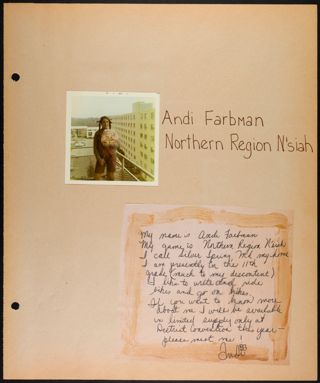 Andi Farbman
Northern Region N'siah
My name is Andi Farbman
My game is Northern Region N'siah
I call Silver Spring, Md my home
I am presently in the 11th
grade (much to my discontent)
I like to write and ride
bikes and go on hikes.
If you want to know more
about me I will be available
in limited supply only at
District Convention this year—
please meet me!